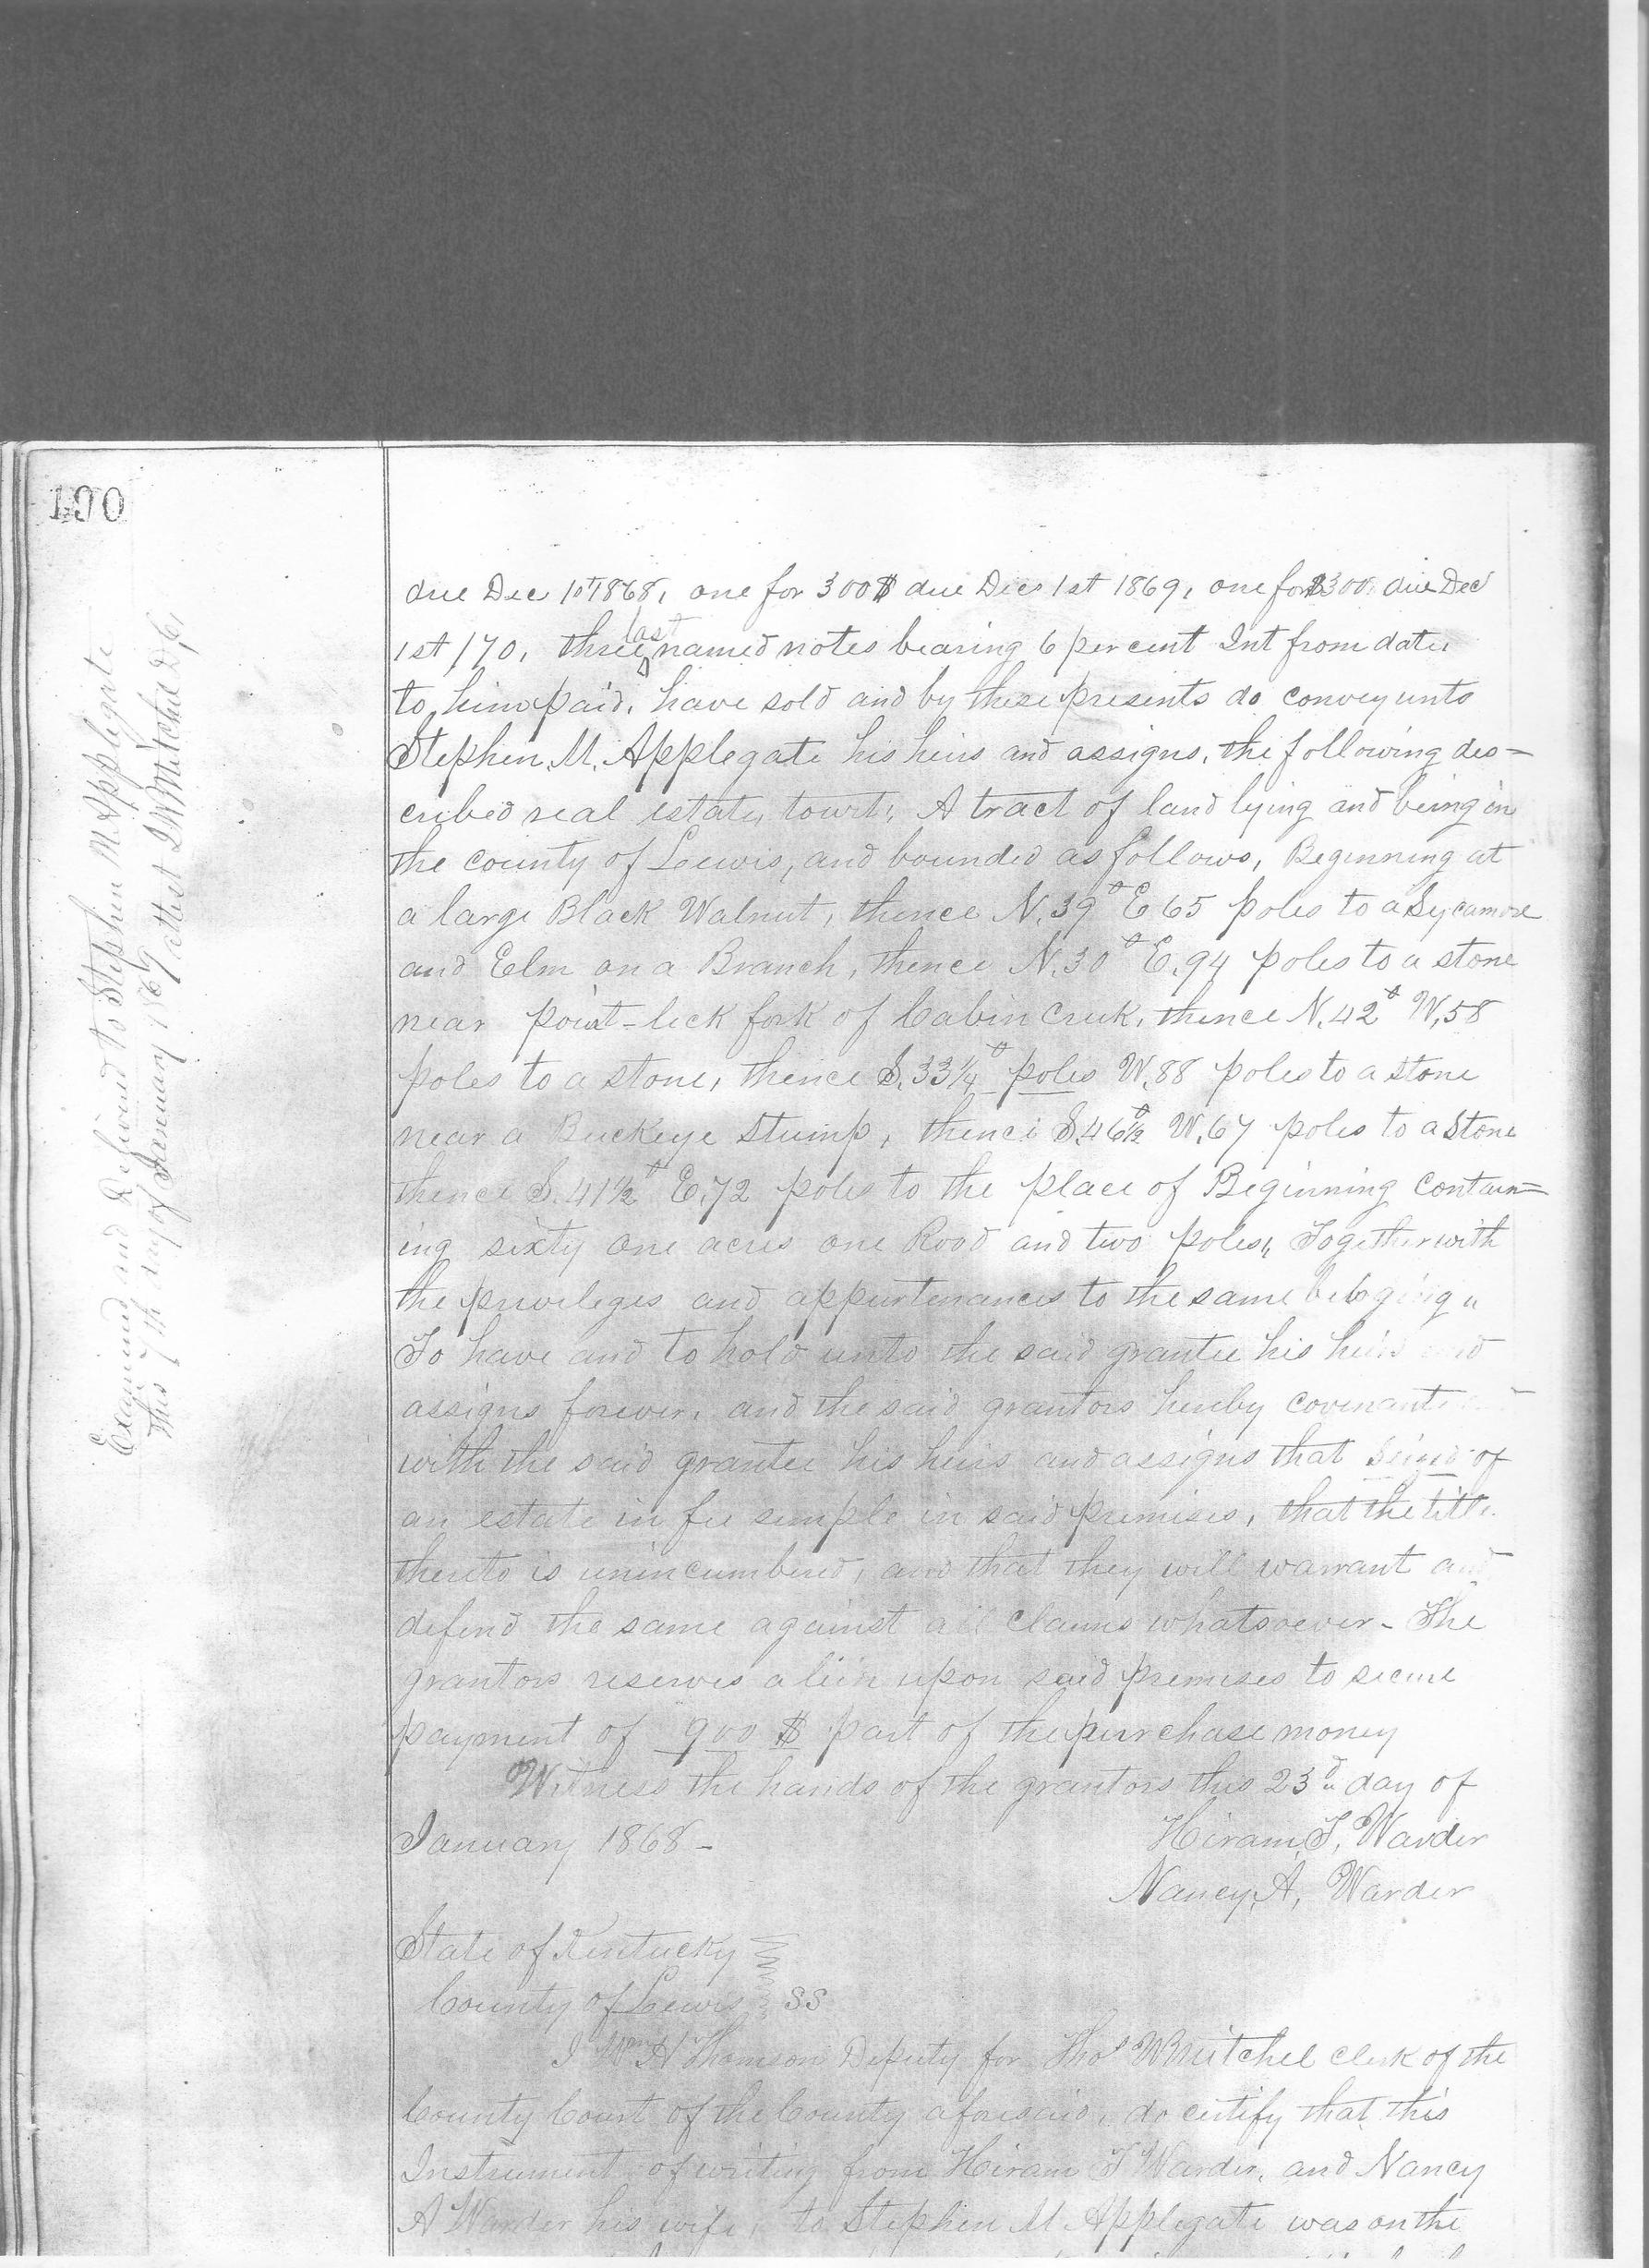 190
Examined and Delivered to Stephen M. Applegate
this 7th day of January 1869 attest
due Dec 1st 1868, one for 300$ due Dec 1st 1869, one for $300 due Dec
1st 170, three last named notes bearing 6 per cent Int from date,
to him paid, have sold and by these presents do convey unto
Stephen. M. Applegate his heirs and assigns, the following des=
cribed real estate, towit, A tract of land lying and being in
the county of Lewis, and bounded as follows, Beginning at
a large Black Walnut, thence N. 39° E 65 poles to a Sycamore
and Elm on a Branch, thence N. 30° E. 94 poles to a stone
near point-lick fork of Cabin Creek, thence N. 42° W. 58
poles to a stone, thence S. 33¼° poles W. 88 poles to a stone
near a Buckeye Stump, thence S. 46½° W. 67 poles to a Stone
thence S. 41½° E. 72 poles to the place of Beginning Contain=
ing sixty one acres one Rood and two poles, Together with
the privileges and appurtenances to the same beloging "
To have and to hold unto the said grantee his heirs and
assigns forever, and the said grantors hereby covenante
with the said grantee his heirs and assigns that Seized of
an estate in fee simple in said premises, that the title
thereto is unincumbered, and that they will warrant and
defend the same against all claims whatsoever - The
grantors reserves a lien upon said premises to secure
payment of 900 $ part of the purchase money
Witness the hands of the grantors this 23d day of
January 1868 -
Hiram, T, Warder
Nancy, A, Warder
State of Kentucky
County of Lewis SS
I Wm H Thomson Deputy for Thos W Mitchel clerk of the
County Court of the County aforesaid, do certify that this
Instrument of writing from Hiram T Warder, and Nancy
A Warder his wife, to Stephen M Applegate was on the